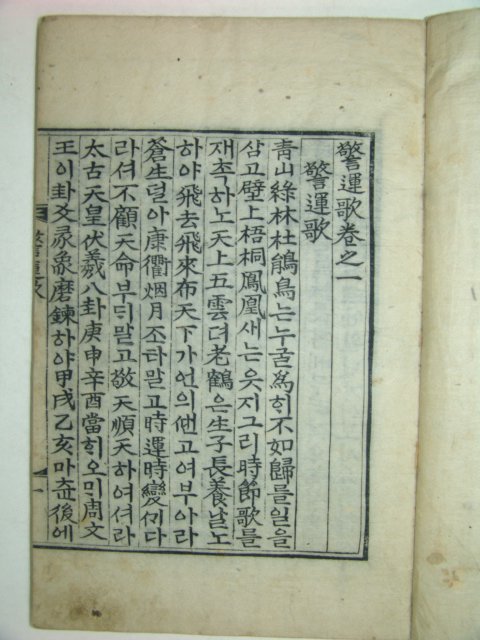 警運歌卷之一
警運歌
靑山綠林杜鵑鳥는누굴爲ᄒᆡ不如歸를일을
삼고壁上梧桐鳳凰새는웃지그리時節歌를
재촉하노天上五雲뎌老鶴은生子長養날노
하야飛去飛來布天下가언의ᄯᅢᆫ고여부아라
蒼生덜아康衢烟月조타말고時運時變ᄭᆡ다
라셔不顧天命부듸말고敬天順天하여셔라
太古天皇伏羲八卦庚申辛酉當ᄒᆡ오ᄆᆡ周文
王이卦爻彖象磨鍊하야甲戌乙亥마츤後에
一